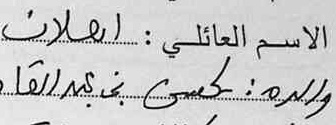 الاسم العائلي : اهلان
والده : لحسن بن عبد القا